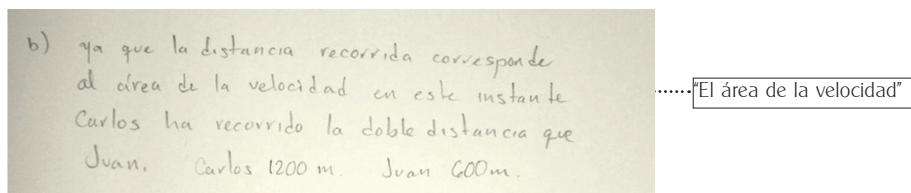 b) ya que la distancia recorrida corresponde
al área de la velocidad en este instante
Carlos ha recorrido la doble distancia que
Juan. Carlos 1200 m. Juan 600m.
"El área de la velocidad"